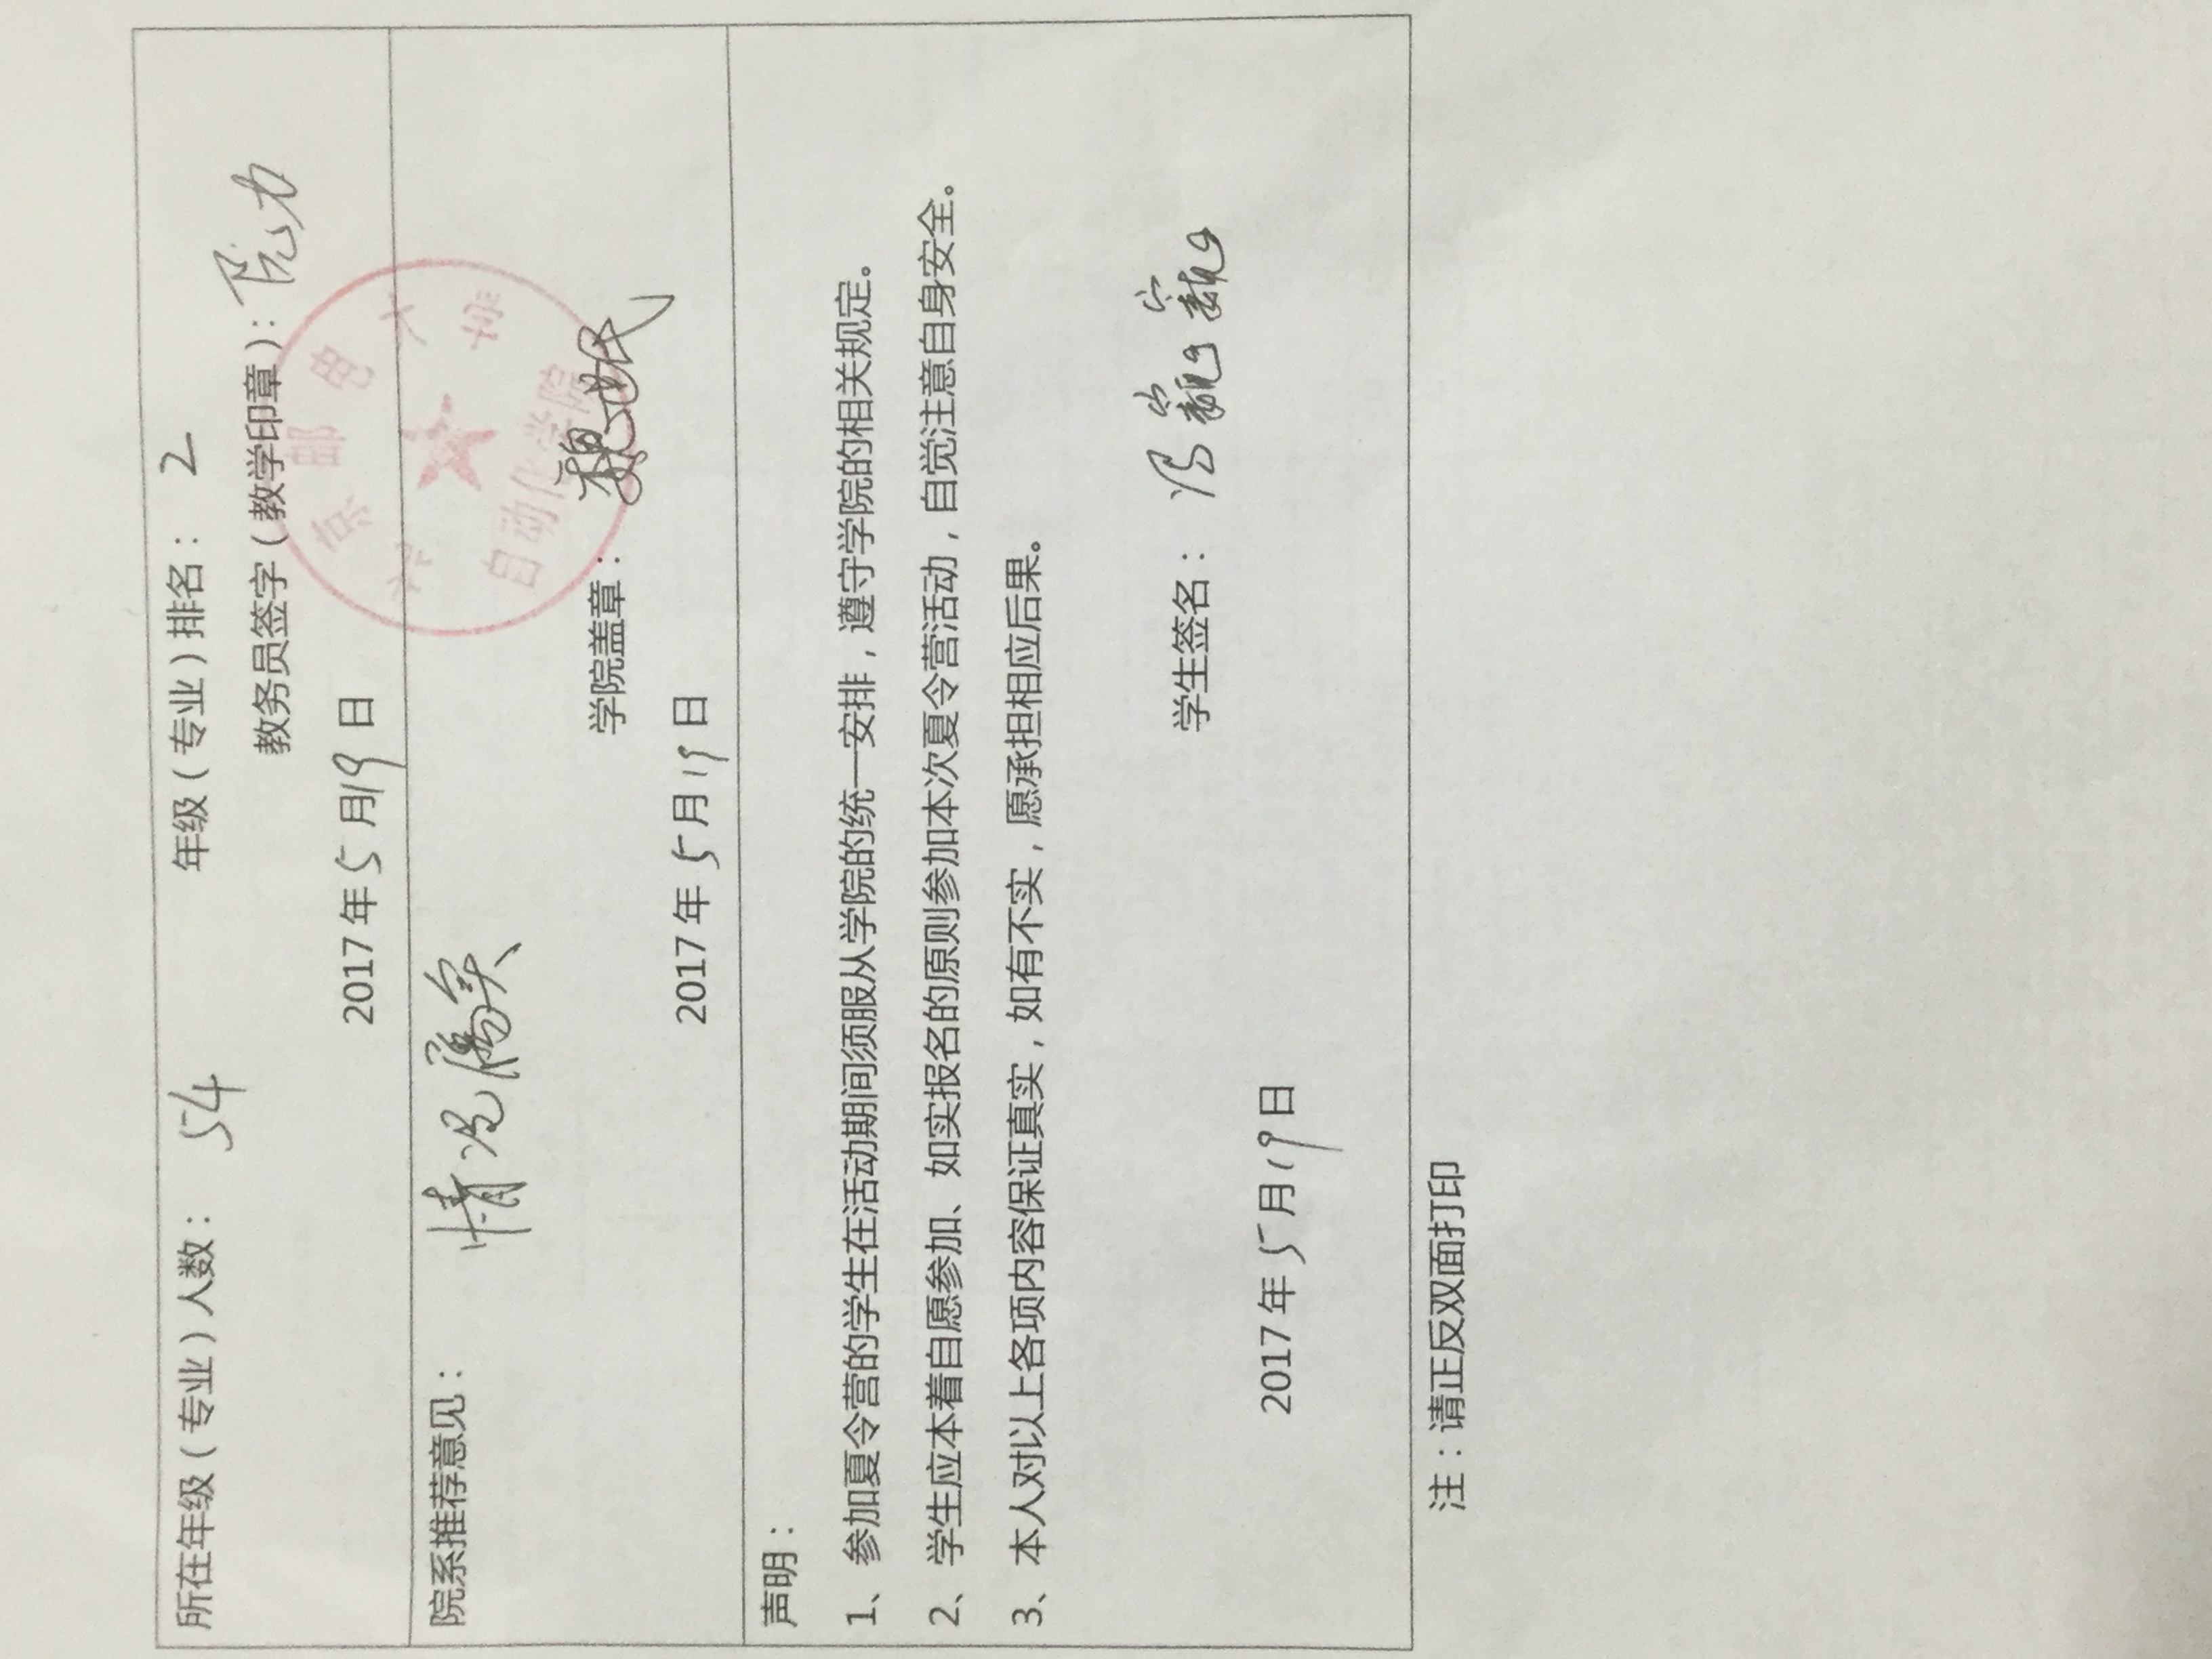 所在年级（专业）人数： 54 年级（专业）排名： 2
教务员签字（教学印章）： 阮力
2017 年 5 月 19 日
北京邮电大学
自动化学院
院系推荐意见： 情况属实
学院盖章： 魏世民
2017 年 5 月 19 日
声明：
1、参加夏令营的学生在活动期间须服从学院的统一安排，遵守学院的相关规定。
2、学生应本着自愿参加、如实报名的原则参加本次夏令营活动，自觉注意自身安全。
3、本人对以上各项内容保证真实，如有不实，愿承担相应后果。
学生签名： 冯巍巍
2017 年 5 月 19 日
注：请正反双面打印